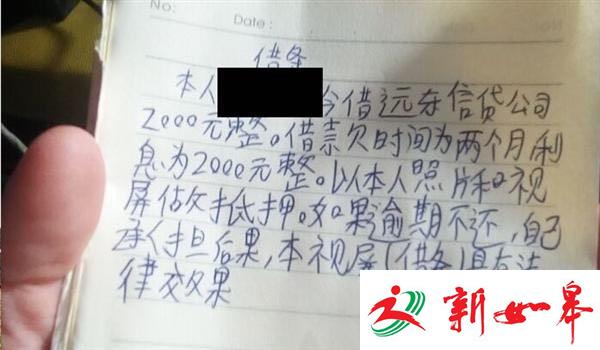 No:
Date:
借条
本人 今借远东信贷公司
2000元整。借款时间为两个月利
息为2000元整。以本人照片和视
屏估欠抵押。如果逾期不还,自己
承担后果,本视屏(借条)具有法
律效果
新如皋